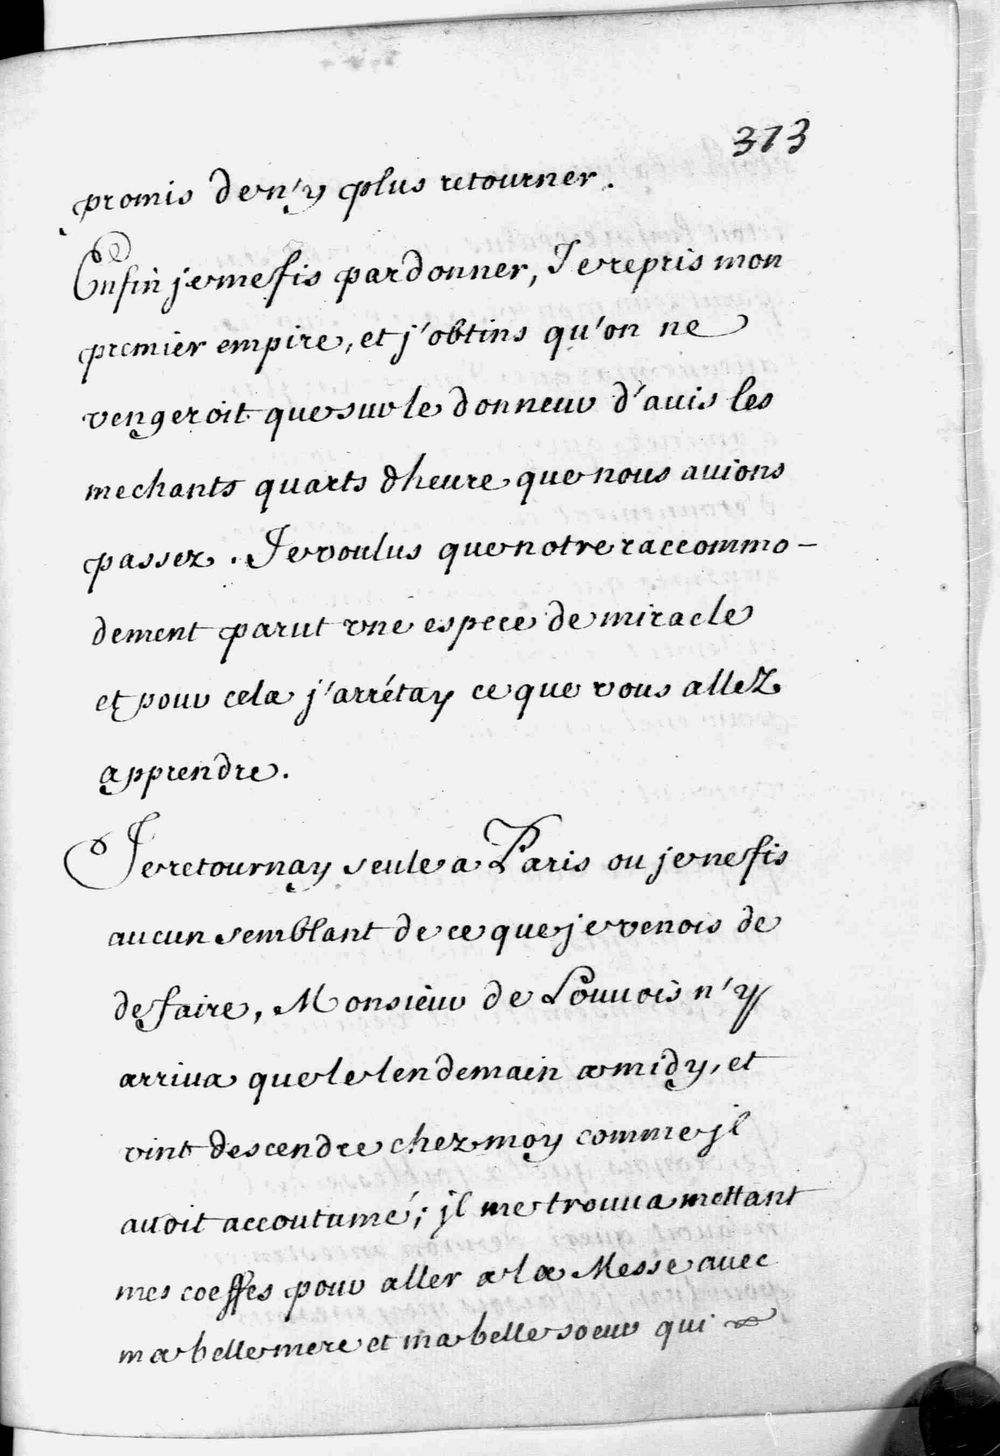 373
promis de n'y plus retourner.
Enfin je me fis pardonner, Je repris mon
premier empire, et j'obtins qu'on ne
vengeroit que sur le donneur d'auis les
mechants quarts d'heure que nous auions
passez. Je voulus que notre raccommo-
dement parut vne espece de miracle
et pour cela j'arrétay ce que vous allez
apprendre.
Je retournay seule a Paris ou je ne fis
aucun semblant de ce que je venois de
de faire, Monsieur de Louuois n'y
arriua que le lendemain a midy, et
vint descendre chez moy comme jl
auoit accoutumé; jl me trouua mettant
mes coeffes pour aller a la Messe auec
ma belle mere et ma belle soeur qui